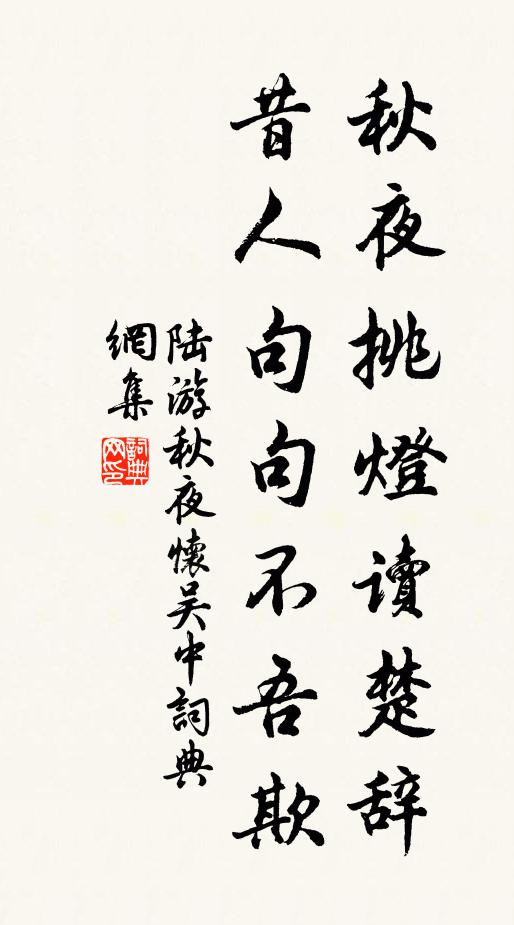 秋夜挑燈讀楚辞
昔人句句不吾欺
陆游秋夜懷吴中詞典
網集
詞典網印